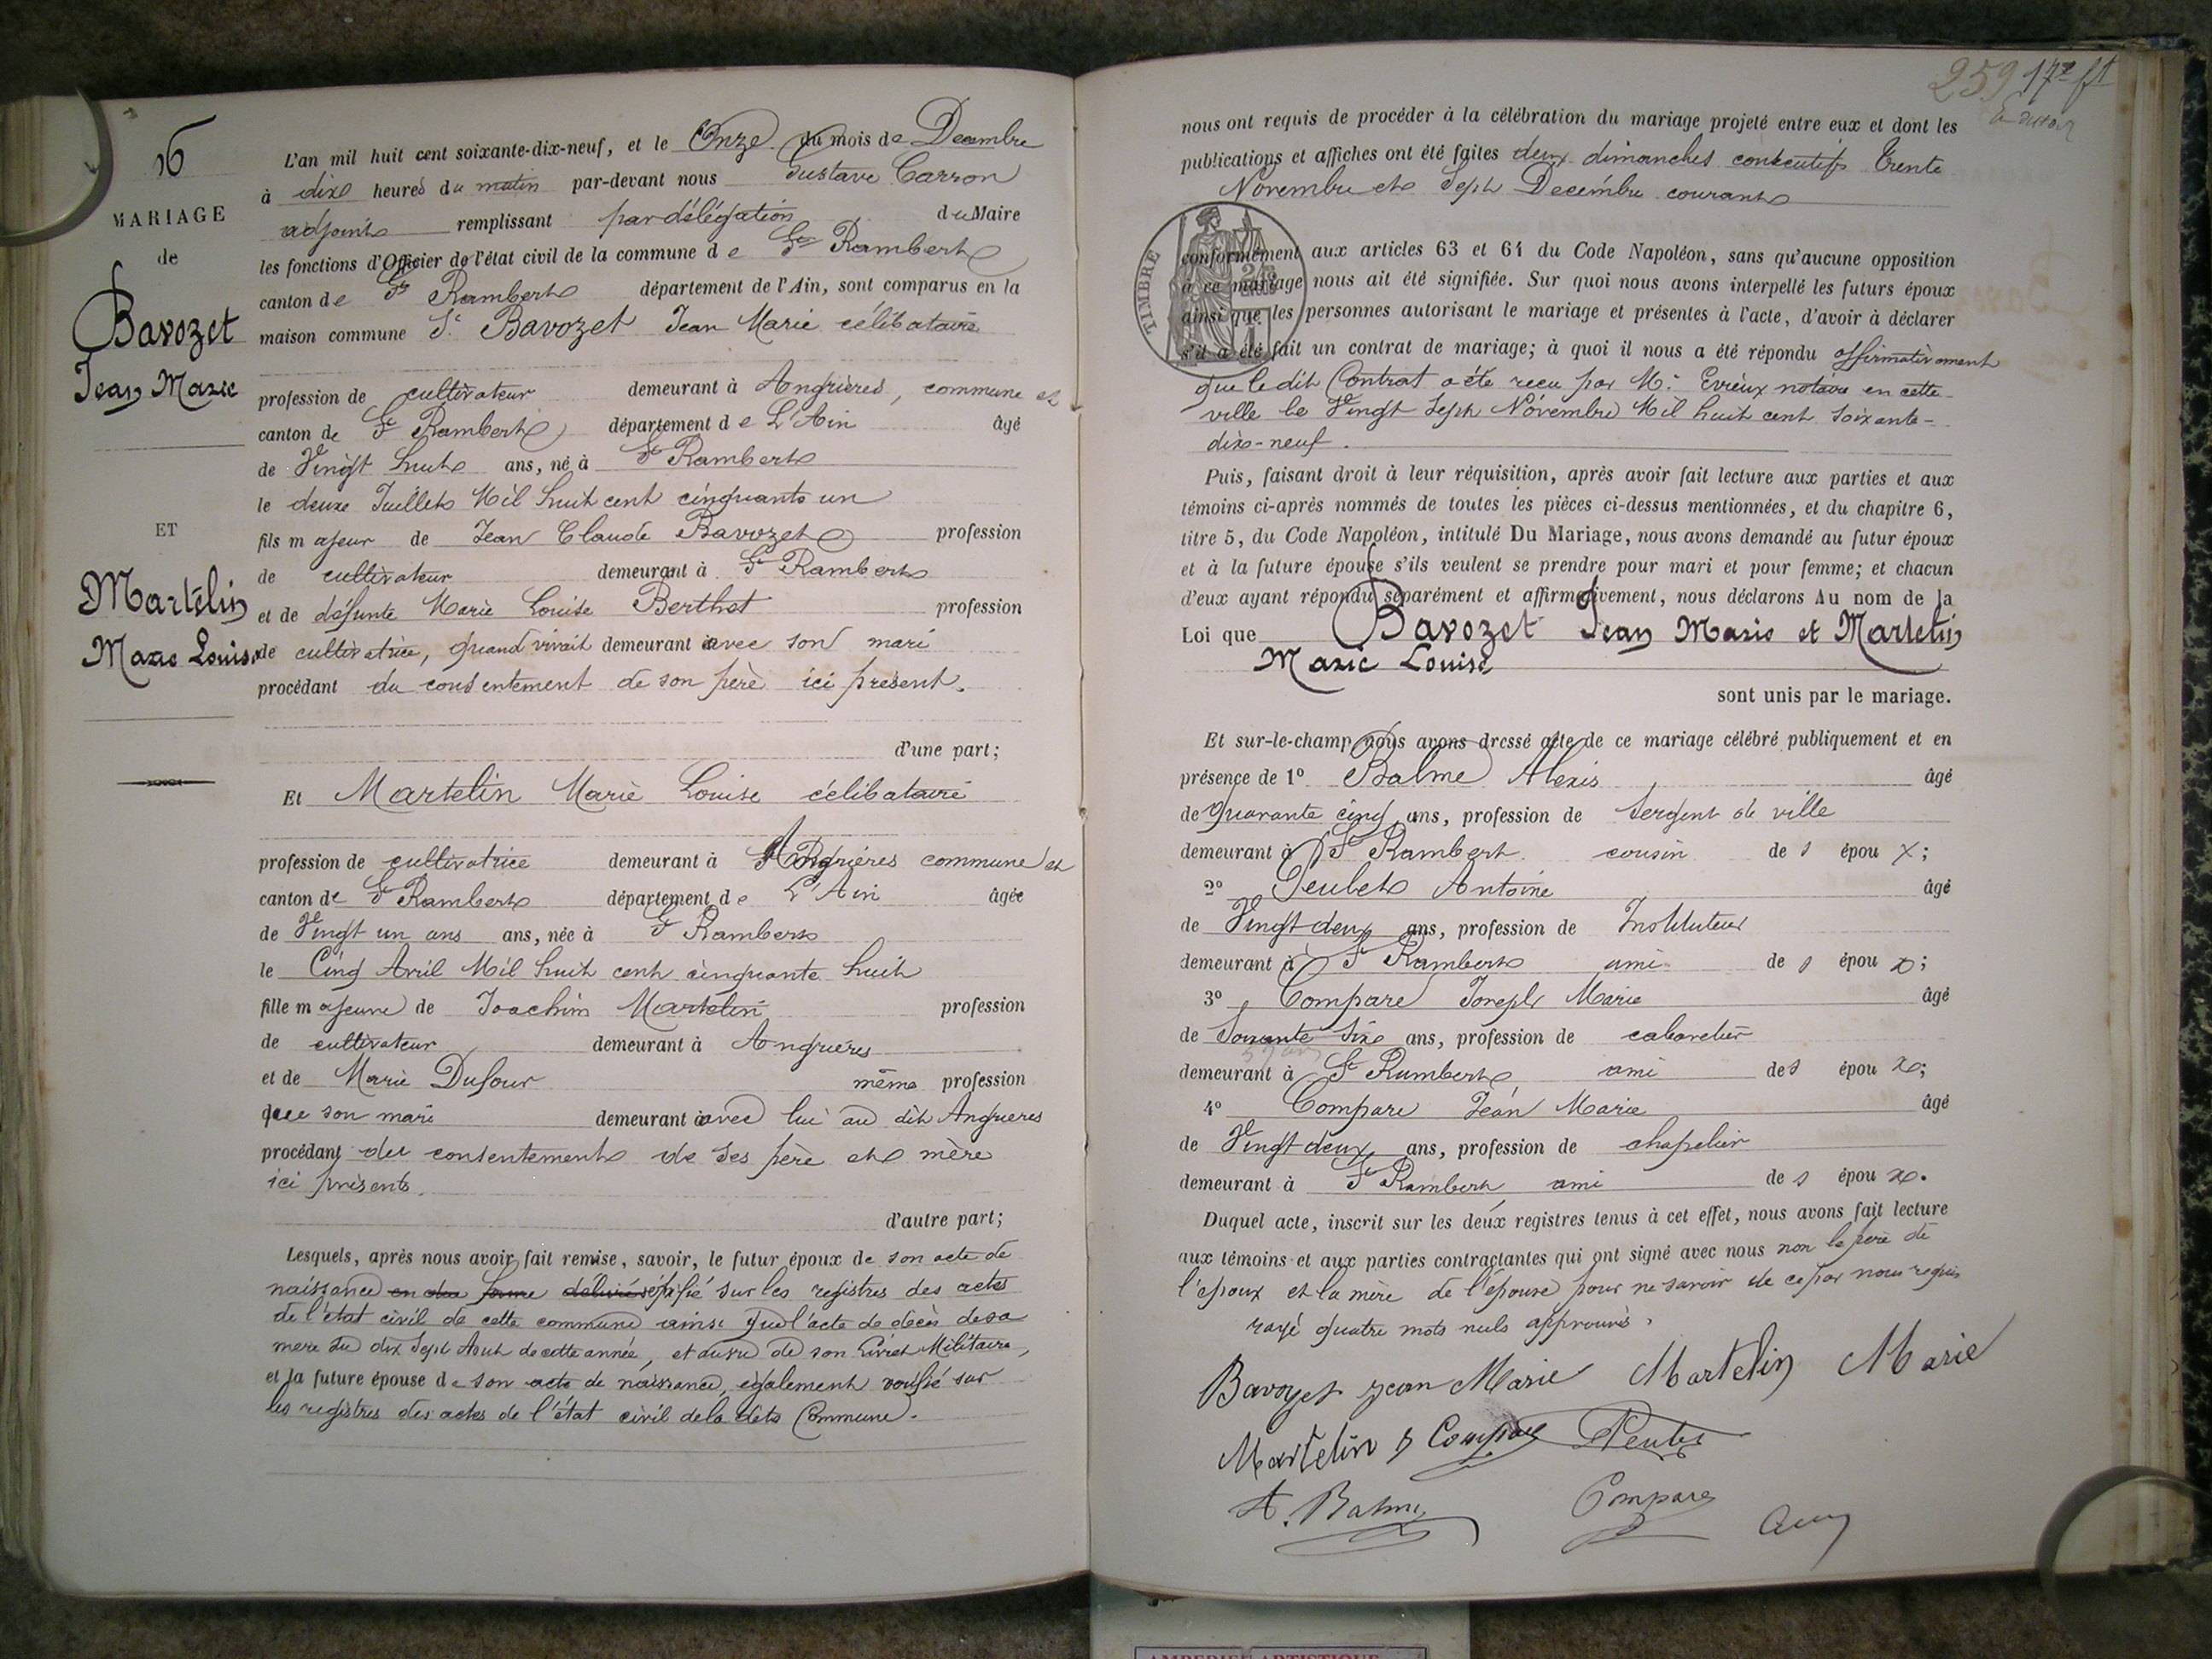 16
MARIAGE
de
Bavozet
Jean Marie
ET
Martelin
Marie Louise
L'an mil huit cent soixante-dix-neuf, et le Onze du mois de Decembre
à dix heures du matin par-devant nous Gustave Carron
adjoint remplissant par délégation du Maire
les fonctions d'Officier de l'état civil de la commune de St Rambert
canton de St Rambert département de l'Ain, sont comparus en la
maison commune Sr Bavozet Jean Marie célibataire
profession de cultivateur demeurant à Angrières, commune et
canton de St Rambert département de L'Ain âgé
de Vingt huit ans, né à St Rambert
le deux Juillet Mil huit cent cinquante un
fils majeur de Jean Claude Bavozet profession
de cultivateur demeurant à St Rambert
et de défunte Marie Louise Berthet profession
de cultivatrice, quand vivait demeurant avec son mari
procédant du consentement de son père ici présent.
d'une part;
Et Martelin Marie Louise célibataire
profession de cultivatrice demeurant à Angrières commune et
canton de St Rambert département de L'Ain âgée
de Vingt un ans ans, née à St Rambert
le Cinq Avril Mil huit cent cinquante huit
fille majeure de Joachim Martelin profession
de cultivateur demeurant à Angrières
et de Marie Dufour même profession
que son mari demeurant avec lui au dit Angrières
procédant du consentement de ses père et mère
ici présents.
d'autre part;
Lesquels, après nous avoir fait remise, savoir, le futur époux de son acte de
naissance en due forme délivré vérifié sur les registres des actes
de l'état civil de cette commune ainsi que l'acte de décès de sa
mère du dix Sept Aout de cette année, et au vu de son Livret Militaire,
et la future épouse de son acte de naissance, également vérifié sur
les registres des actes de l'état civil de la dite Commune.
259 17e ft
nous ont requis de procéder à la célébration du mariage projeté entre eux et dont les
publications et affiches ont été faites deux dimanches consécutifs Trente
Novembre et Sept Décembre courant
TIMBRE
conformément aux articles 63 et 64 du Code Napoléon, sans qu'aucune opposition
à ce mariage nous ait été signifiée. Sur quoi nous avons interpellé les futurs époux
ainsi que les personnes autorisant le mariage et présentes à l'acte, d'avoir à déclarer
s'il a été fait un contrat de mariage; à quoi il nous a été répondu affirmativement
que le dit Contrat a été reçu par Me Evieux notaire en cette
ville le Vingt Sept Novembre Mil huit cent soixante-
dix-neuf.
Puis, faisant droit à leur réquisition, après avoir fait lecture aux parties et aux
témoins ci-après nommés de toutes les pièces ci-dessus mentionnées, et du chapitre 6,
titre 5, du Code Napoléon, intitulé Du Mariage, nous avons demandé au futur époux
et à la future épouse s'ils veulent se prendre pour mari et pour femme; et chacun
d'eux ayant répondu séparément et affirmativement, nous déclarons Au nom de la
Loi que Bavozet Jean Marie et Martelin
Marie Louise
sont unis par le mariage.
Et sur-le-champ nous avons dressé acte de ce mariage célébré publiquement et en
présence de 1° Balme Alexis âgé
de Quarante cinq ans, profession de Sergent de ville
demeurant à St Rambert cousin de s épou x;
2° Peubet Antoine âgé
de Vingt deux ans, profession de Instituteur
demeurant à St Rambert ami de s épou x;
3° Compare Joseph Marie âgé
de Soixante Six ans, profession de cabaretier
demeurant à St Rambert ami de s épou x;
4° Compare Jean Marie âgé
de Vingt deux ans, profession de chapelier
demeurant à St Rambert ami de s épou x.
Duquel acte, inscrit sur les deux registres tenus à cet effet, nous avons fait lecture
aux témoins et aux parties contractantes qui ont signé avec nous non le père de
l'époux et la mère de l'épouse pour ne savoir de ce par nous requis
rayé quatre mots nuls approuvés.
Bavozet Jean Marie Martelin Marie
Martelin J Compare Peubet
A. Balme Compare
AMBERIEU ARTISTIQUE